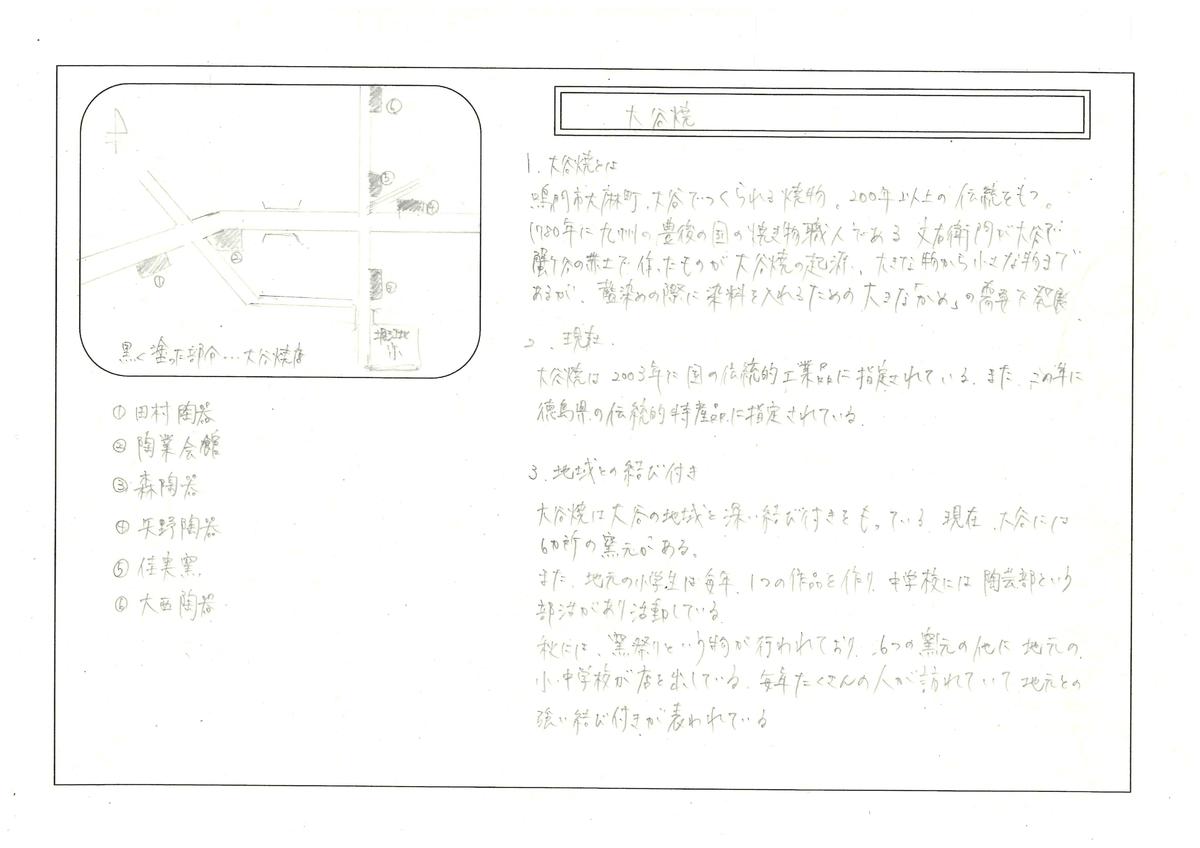 大谷焼
1. 大谷焼とは
鳴門市大麻町、大谷でつくられる焼物。200年以上の伝統をもつ。
1780年に九州の豊後の国の焼き物職人である 文右衛門が大谷で
蟹ヶ谷の赤土で作ったものが大谷焼の起源。大きな物から小さな物まで
あるが、藍染めの際に染料を入れるための大きな「かめ」の需要で発展
2. 現在
大谷焼は2003年に国の伝統的工業品に指定されている。また、この年に
徳島県の伝統的特産品に指定されている。
3. 地域との結び付き
大谷焼は大谷の地域と深い結び付きをもっている。現在、大谷には
6カ所の窯元がある。
また、地元の小学生は毎年、1つの作品を作り、中学校には陶芸部という
部活があり活動している。
秋には、窯祭りという物が行われており、6つの窯元の他に地元の
小・中学校が店を出している。毎年たくさんの人が訪れていて地元との
強い結び付きが表われている
⑥
⑤
④
②
①
③
黒く塗った部分…大谷焼店
① 田村陶器
② 陶業会館
③ 森陶器
④ 矢野陶器
⑤ 佳実窯
⑥ 大西陶器